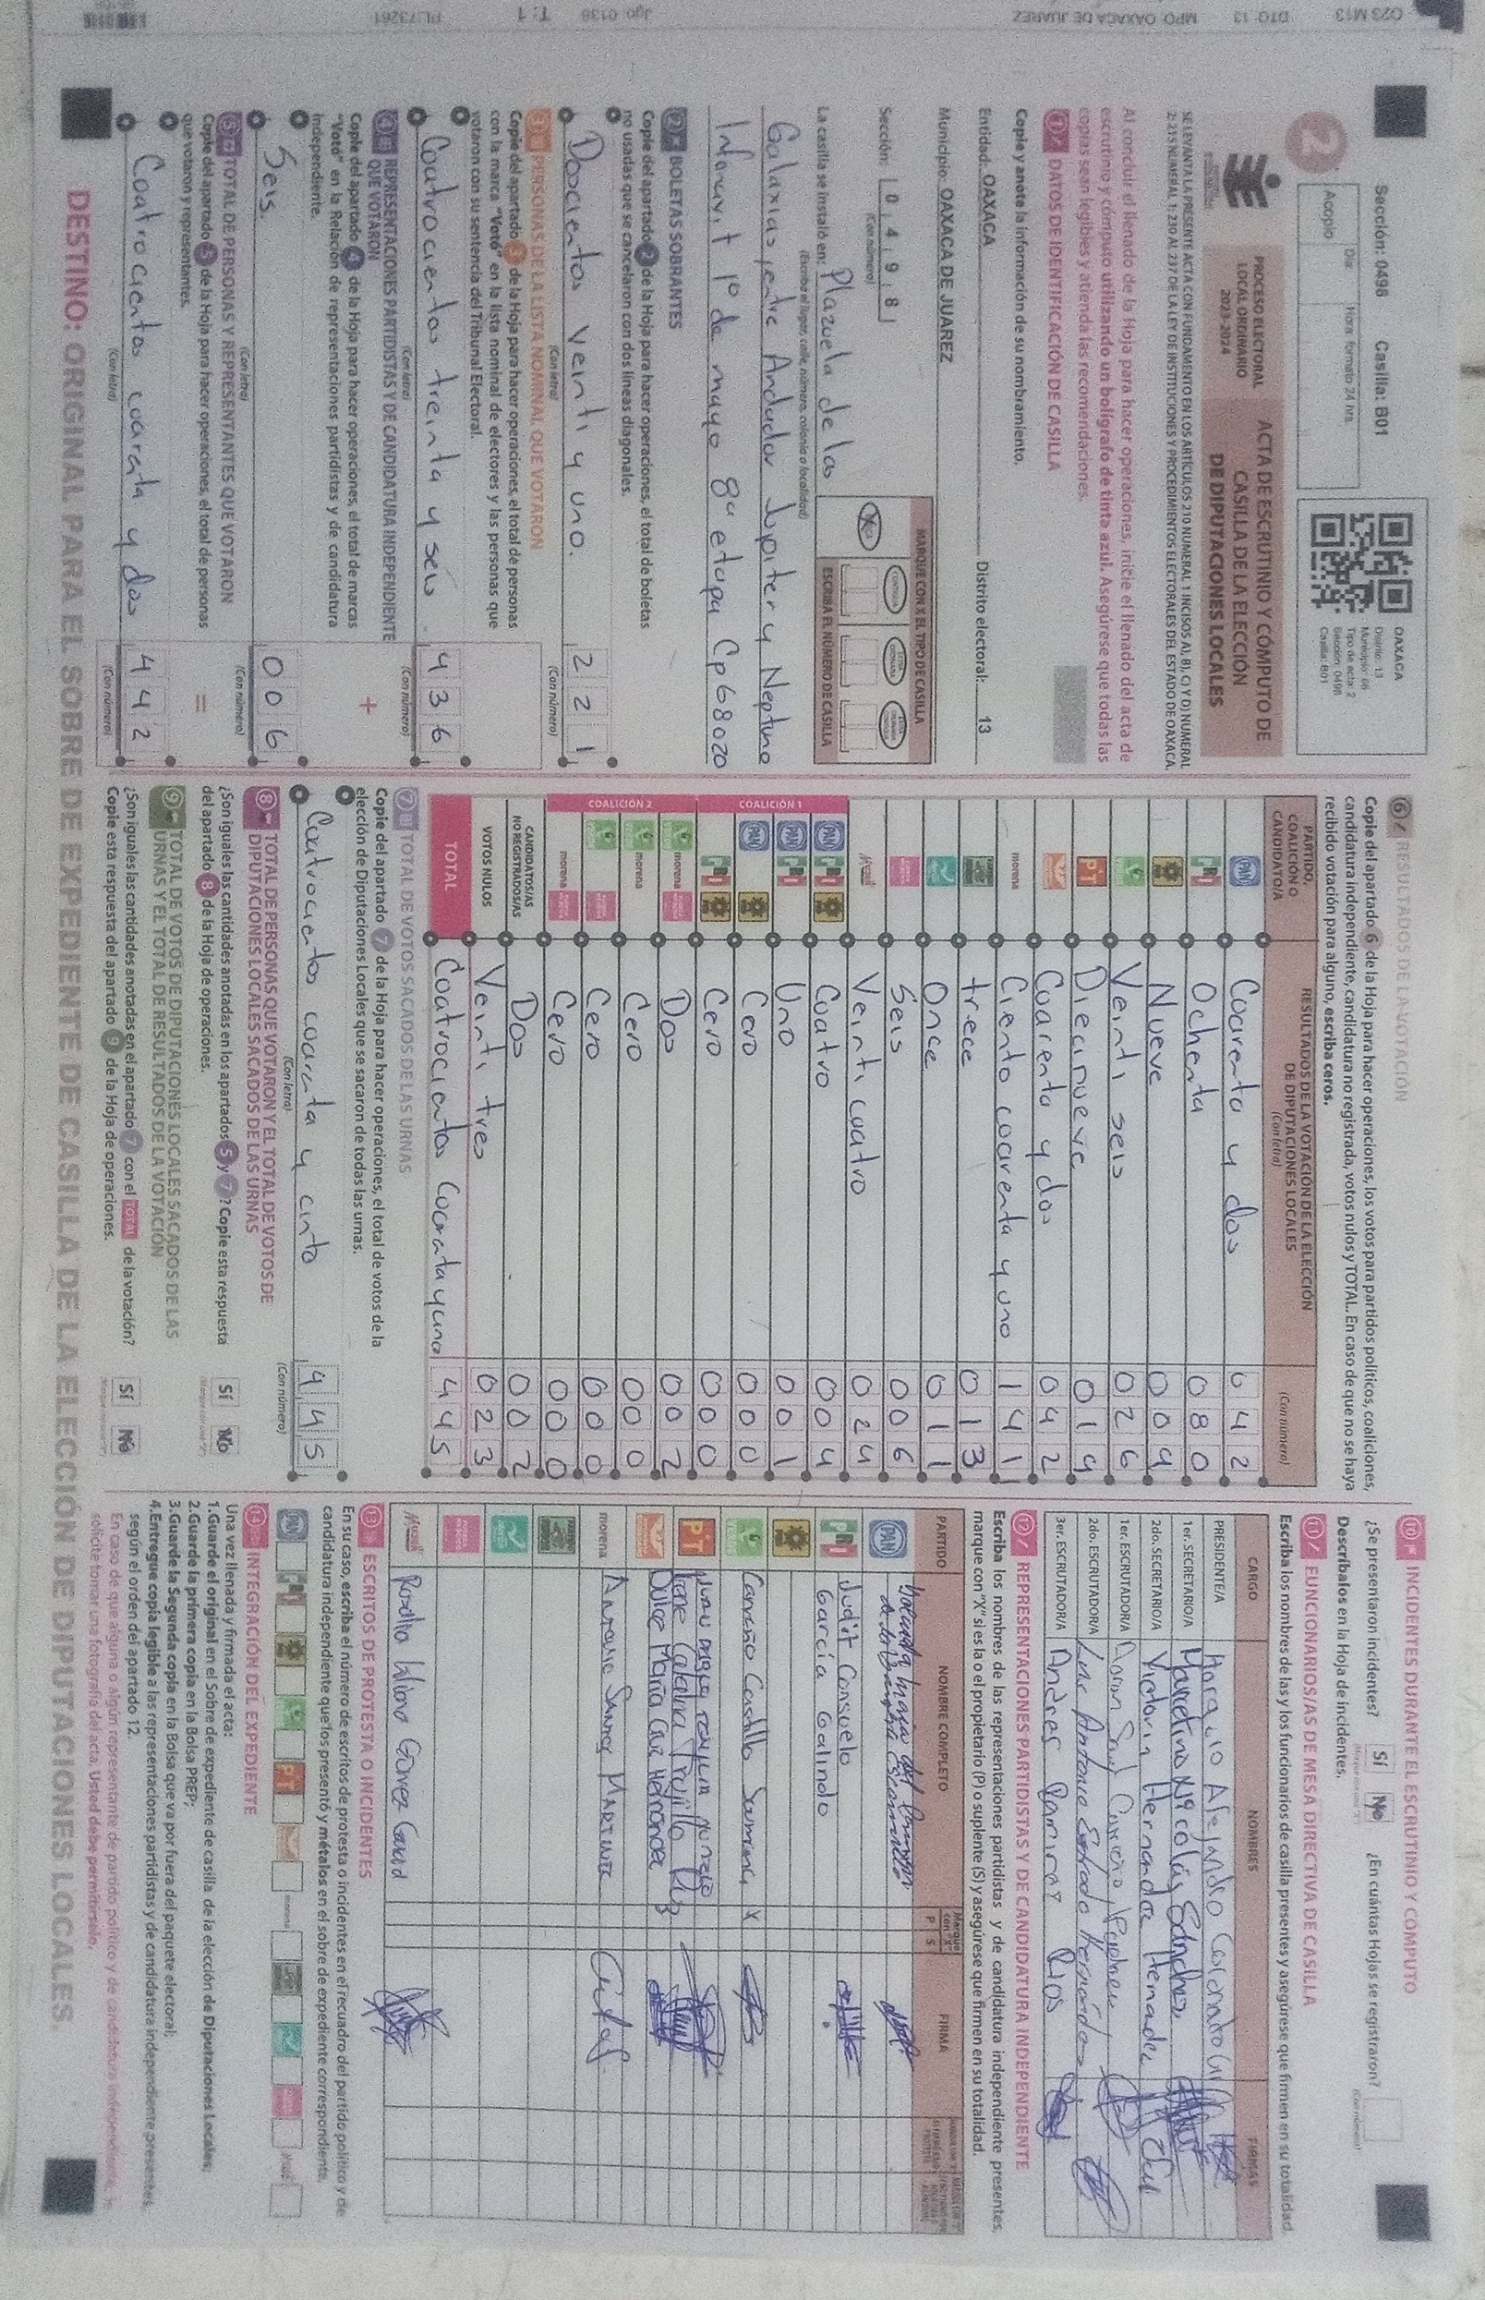 Sección: 0498 Casilla: B01
Día Hora: formato 24 hrs.
Acopio
2
OAXACA
Distrito: 13
Municipio: 66
Tipo de acta: 2
Sección: 0498
Casilla: B01
PROCESO ELECTORAL
LOCAL ORDINARIO
2023-2024
ACTA DE ESCRUTINIO Y CÓMPUTO DE
CASILLA DE LA ELECCIÓN
DE DIPUTACIONES LOCALES
SE LEVANTA LA PRESENTE ACTA CON FUNDAMENTO EN LOS ARTÍCULOS 210 NUMERAL 1 INCISOS A), B), C) Y D) NUMERAL
2; 215 NUMERAL 1; 230 AL 237 DE LA LEY DE INSTITUCIONES Y PROCEDIMIENTOS ELECTORALES DEL ESTADO DE OAXACA.
Al concluir el llenado de la Hoja para hacer operaciones, inicie el llenado del acta de
escrutinio y cómputo utilizando un bolígrafo de tinta azul. Asegúrese que todas las
copias sean legibles y atienda las recomendaciones.
1 DATOS DE IDENTIFICACIÓN DE CASILLA
Copie y anote la información de su nombramiento.
Entidad: OAXACA Distrito electoral: 13
Municipio: OAXACA DE JUAREZ
Sección: 0 4 9 8
(Con número)
MARQUE CON X EL TIPO DE CASILLA
ESCRIBA EL NÚMERO DE CASILLA
La casilla se instaló en: Plazuela de las
(Escriba el lugar, calle, número, colonia o localidad)
Galaxias, entre Andador Jupiter y Neptuno
Infonavit 1º de mayo 8ª etapa Cp 68020
2 BOLETAS SOBRANTES
Copie del apartado 2 de la Hoja para hacer operaciones, el total de boletas
no usadas que se cancelaron con dos líneas diagonales.
Doscientos veinti y uno. 2 2 1
(Con letra) (Con número)
3 PERSONAS DE LA LISTA NOMINAL QUE VOTARON
Copie del apartado 3 de la Hoja para hacer operaciones, el total de personas
con la marca "Votó" en la lista nominal de electores y las personas que
votaron con su sentencia del Tribunal Electoral.
Coatrocientos treinta y seis 4 3 6
(Con letra) (Con número)
4 REPRESENTACIONES PARTIDISTAS Y DE CANDIDATURA INDEPENDIENTE
QUE VOTARON
+
Copie del apartado 4 de la Hoja para hacer operaciones, el total de marcas
"Votó" en la Relación de representaciones partidistas y de candidatura
independiente.
Seis. 0 0 6
(Con letra) (Con número)
5 TOTAL DE PERSONAS Y REPRESENTANTES QUE VOTARON
=
Copie del apartado 5 de la Hoja para hacer operaciones, el total de personas
que votaron y representantes.
Coatrocientos coarata y dos 4 4 2
(Con letra) (Con número)
6 RESULTADOS DE LA VOTACIÓN
Copie del apartado 6 de la Hoja para hacer operaciones, los votos para partidos políticos, coaliciones,
candidatura independiente, candidatura no registrada, votos nulos y TOTAL. En caso de que no se haya
recibido votación para alguno, escriba ceros.
PARTIDO, COALICIÓN O CANDIDATO/A
RESULTADOS DE LA VOTACIÓN DE LA ELECCIÓN DE DIPUTACIONES LOCALES
(Con letra) (Con número)
PAN Coarenta y dos 0 4 2
PRI Ochenta 0 8 0
Nueve 0 0 9
Veinti seis 0 2 6
PT Diecinueve 0 1 9
Coarenta y dos 0 4 2
morena Ciento coarenta y uno 1 4 1
trece 0 1 3
Once 0 1 1
Seis 0 0 6
Veinti coatro 0 2 4
COALICIÓN 1
PAN PRI Coatro 0 0 4
PAN PRI Uno 0 0 1
PAN Cero 0 0 0
PRI Cero 0 0 0
COALICIÓN 2
morena Dos 0 0 2
morena Cero 0 0 0
Cero 0 0 0
morena Cero 0 0 0
CANDIDATOS/AS NO REGISTRADOS/AS Dos 0 0 2
VOTOS NULOS Veinti tres 0 2 3
TOTAL 4 4 5
7 TOTAL DE VOTOS SACADOS DE LAS URNAS
Copie del apartado 7 de la Hoja para hacer operaciones, el total de votos de la
elección de Diputaciones Locales que se sacaron de todas las urnas.
4 4 5
(Con letra) (Con número)
8 TOTAL DE PERSONAS QUE VOTARON Y EL TOTAL DE VOTOS DE
DIPUTACIONES LOCALES SACADOS DE LAS URNAS
¿Son iguales las cantidades anotadas en los apartados 5 y 7? Copie esta respuesta
del apartado 8 de la Hoja de operaciones.
Sí No
9 TOTAL DE VOTOS DE DIPUTACIONES LOCALES SACADOS DE LAS
URNAS Y EL TOTAL DE RESULTADOS DE LA VOTACIÓN
¿Son iguales las cantidades anotadas en el apartado 7 con el TOTAL de la votación?
Copie esta respuesta del apartado 9 de la Hoja de operaciones.
Sí No
10 INCIDENTES DURANTE EL ESCRUTINIO Y CÓMPUTO
¿Se presentaron incidentes? Sí No ¿En cuántas Hojas se registraron?
Descríbalos en la Hoja de incidentes.
11 FUNCIONARIOS/AS DE MESA DIRECTIVA DE CASILLA
Escriba los nombres de las y los funcionarios de casilla presentes y asegúrese que firmen en su totalidad.
CARGO NOMBRES FIRMAS
PRESIDENTE/A Horacio Alejandro
1er. SECRETARIO/A Nicolás Sánchez
2do. SECRETARIO/A Victoria Hernandez
1er. ESCRUTADOR/A
2do. ESCRUTADOR/A Luis Antonio Estrada Hernández
3er. ESCRUTADOR/A Andres Ramirez Rios
12 REPRESENTACIONES PARTIDISTAS Y DE CANDIDATURA INDEPENDIENTE
Escriba los nombres de las representaciones partidistas y de candidatura independiente presentes,
marque con "X" si es la o el propietario (P) o suplente (S) y asegúrese que firmen en su totalidad.
PARTIDO NOMBRE COMPLETO P S FIRMA
PAN
PRI Judit Consuelo
García Galindo
Castillo X
PT
Irene Catalina Trujillo
Dulce María
morena Antonio
13 ESCRITOS DE PROTESTA O INCIDENTES
En su caso, escriba el número de escritos de protesta o incidentes en el recuadro del partido político y de
candidatura independiente que los presentó y métalos en el sobre de expediente correspondiente.
PAN PRI PT morena
14 INTEGRACIÓN DEL EXPEDIENTE
Una vez llenada y firmada el acta:
1.Guarde el original en el Sobre de expediente de casilla de la elección de Diputaciones Locales;
2.Guarde la primera copia en la Bolsa PREP;
3.Guarde la Segunda copia en la Bolsa que va por fuera del paquete electoral;
4.Entregue copia legible a las representaciones partidistas y de candidatura independiente presentes,
según el orden del apartado 12.
En caso de que alguna o algún representante de partido político y de candidatura independiente, le
solicite tomar una fotografía del acta, Usted debe permitírselo.
DESTINO: ORIGINAL PARA EL SOBRE DE EXPEDIENTE DE CASILLA DE LA ELECCIÓN DE DIPUTACIONES LOCALES.